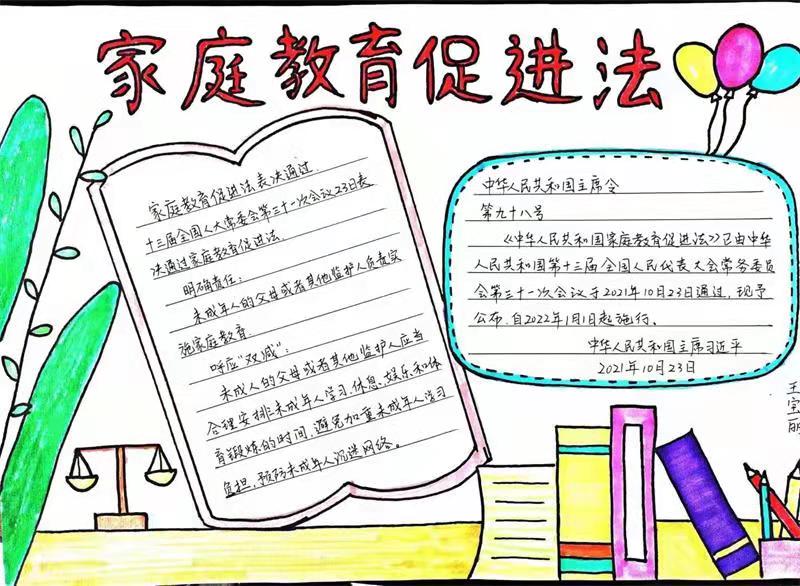 家庭教育促进法
家庭教育促进法表决通过.
十三届全国人大常委会第三十一次会议23日表
决通过家庭教育促进法.
明确责任:
未成年人的父母或者其他监护人负责实
施家庭教育.
呼应"双减":
未成人的父母或者其他监护人应当
合理安排未成年人学习.休息.娱乐和体
育锻炼的时间,避免加重未成年人学习
负担,预防未成年人沉迷网络。
中华人民共和国主席令
第九十八号
《中华人民共和国家庭教育促进法》已由中华
人民共和国第十三届全国人民代表大会常务委员
会第三十一次会议于2021年10月23日通过,现予
公布,自2022年1月1日起施行。
中华人民共和国主席习近平
2021年10月23日
王宝丽